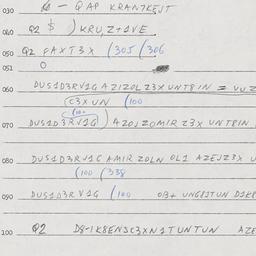 030 — QAP KRANTKEJT
040 Q2 $ ) KRU,Z+1VE
050 Q2 FAXT3X (305 (306
051 O
060 DUS1D3RV1G AZIZOLZ3X UNT8IN = VU.Z
(C3XUN (100
(10-
070 DUS1D3RV1G) AZOJZOMIR Z3X UNT8IN
080 DUS1D3RV1G AMIRZOLN OL1 AZEJZ3X U
(100 (338
090 DUS1D3RV1G (100 OB+ UNG8JTUN D1K8
100 Q2 D8-1K8ENJC3XN1TUNTUN AZE